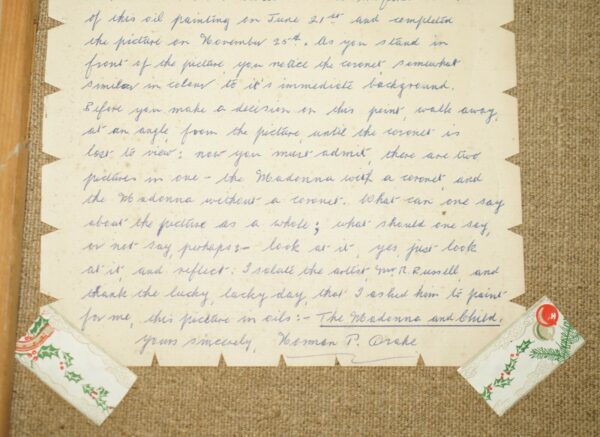 of this oil painting on June 21st and completed
the picture on November 25th. As you stand in
front of the picture you notice the coronet somewhat
similar in colour to it's immediate background.
Before you make a decision on this point, walk away,
at an angle, from the picture, until the coronet is
lost to view; now you must admit, there are two
pictures in one – the Madonna with a coronet, and
the Madonna without a coronet. What can one say
about the picture as a whole; what should one say,
or not say, perhaps:– look at it, yes, just look
at it, and reflect. I salute the artist Mr. R. Russell, and
thank the lucky, lucky day, that I asked him to paint
for me, this picture in oils:– The Madonna and Child.
Yours sincerely, Norman P. Drake